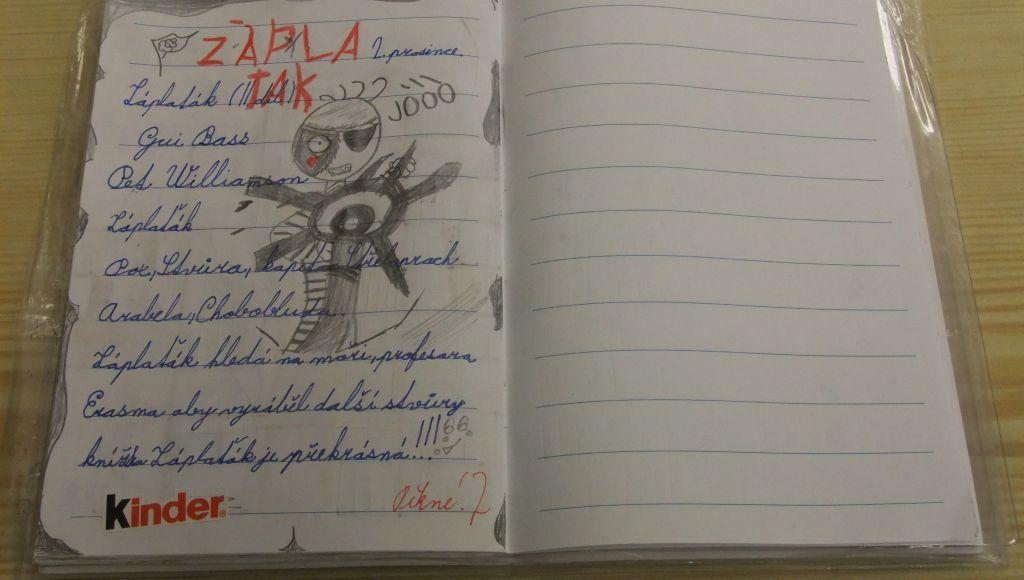 ZÁPLA
TAK
2. prosince
JÓÓÓ
Záplaťák (II. díl)
Gui Bass
Pet Williamson
Záplaťák
Pox, Stvůra, kapitán Střeloprach
Arabela, Chobobluda...
Záplaťák hledá na moři, profesora
Erasma aby vyráběl další stvůry
knížka Záplaťák je překrásná!!!...
Kinder
Pěkné!